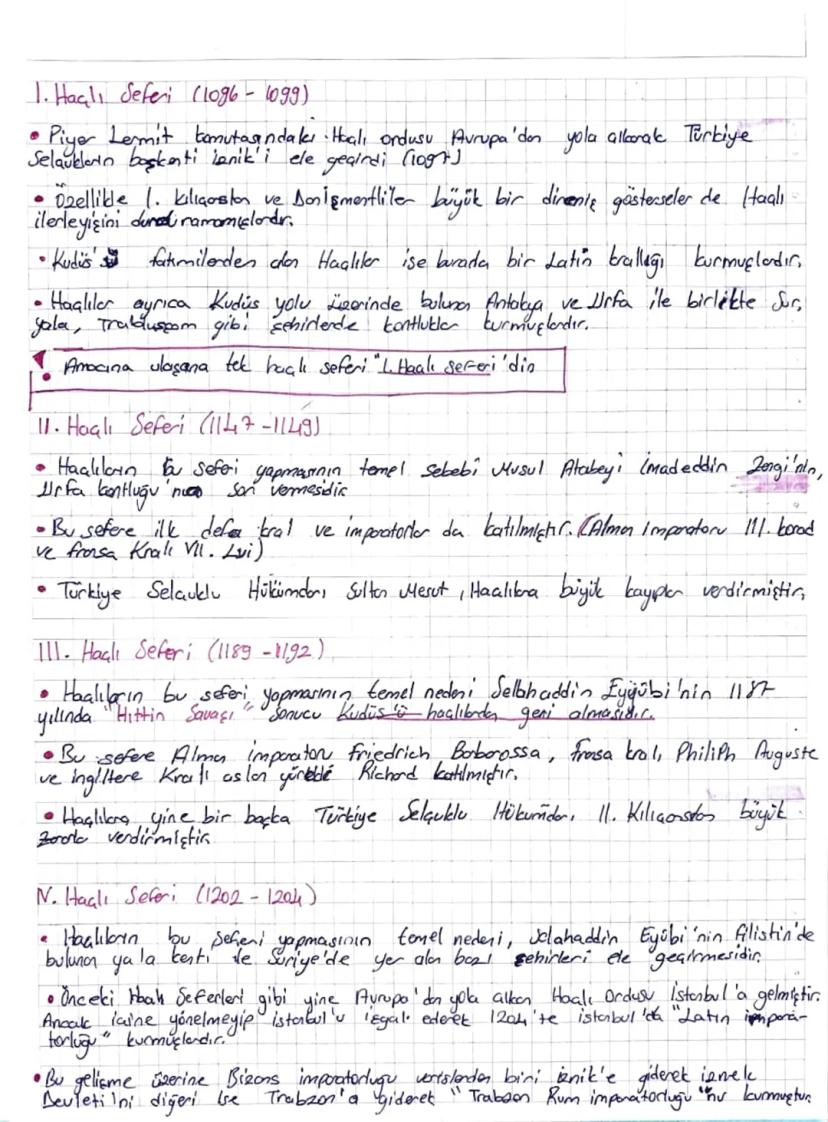 I. Haçlı Seferi (1096 - 1099)
• Piyer Lermit komutasındaki Haçlı ordusu Avrupa'dan yola çıkarak Türkiye
Selçukluların başkenti iznik'i ele geçirdi (1097)
• Özellikle I. kılıçarslan ve Danişmentliler büyük bir direniş gösterseler de Haçlı
ilerleyişini durduramamışlardır.
• Kudüs'ü fatımilerden alan Haçlılar ise burada bir Latin krallığı kurmuşlardır.
• Haçlılar ayrıca Kudüs yolu üzerinde bulunan Antakya ve Urfa ile birlikte Sur,
yala, Trablusşam gibi şehirlerde kontluklar kurmuşlardır.
! Amacına ulaşana tek haçlı seferi "I. Haçlı seferi'dir
II. Haçlı Seferi (1147 - 1149)
• Haçlıların bu seferi yapmasının temel sebebi Musul Atabeyi imadeddin Zengi'nin,
Urfa kontluğu'na son vermesidir
• Bu sefere ilk defa kral ve imparatorlar da katılmıştır. (Alman imparatoru III. korad
ve fransa Kralı VII. Lui)
• Türkiye Selçuklu Hükümdarı Sultan Mesut, Haçlılara büyük kayıplar verdirmiştir.
III. Haçlı Seferi (1189 - 1192)
• Haçlıların bu seferi yapmasının temel nedeni Selahaddin Eyyûbi'nin 1187
yılında "Hıttin Savaşı" sonucu Kudüs'ü haçlılardan geri almasıdır.
• Bu sefere Alman imparatoru friedrich Barborossa, fransa kralı PhiliPh Auguste
ve ingiltere Kralı aslan yürekli Richard katılmıştır.
• Haçlılara yine bir başka Türkiye Selçuklu Hükümdarı II. Kılıçarslan büyük
verdirmiştir
IV. Haçlı Seferi (1202 - 1204)
• Haçlıların bu seferi yapmasının temel nedeni, Selahaddin Eyûbi'nin filistin'de
bulunan yala kenti ile Suriye'de yer alan bazı şehirleri ele geçirmesidir.
• Önceki Haçlı Seferleri gibi yine Avrupa'dan yola çıkan Haçlı Ordusu İstanbul'a gelmiştir.
Ancak içine yönelmeyip istanbul'u işgal ederek 1204'te istanbul'da "Latin impara-
torluğu" kurmuşlardır.
• Bu gelişme üzerine Bizans imparatorluğu varislerden biri iznik'e giderek iznik
Devleti'ni diğeri ise Trabzon'a giderek "Trabzon Rum imparatorluğu"nu kurmuştur.